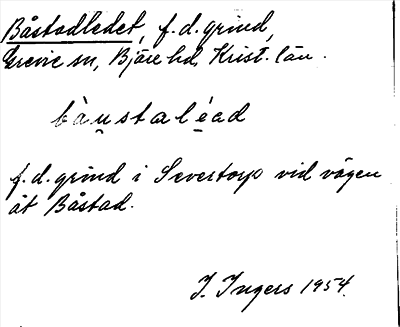 Båstadledet, f.d. grind,
Grevie sn, Bjäre hd, Krist. län.
bàu̯staléad
f.d. grind i Severtorp vid vägen
åt Båstad.
I. Ingers 1954.